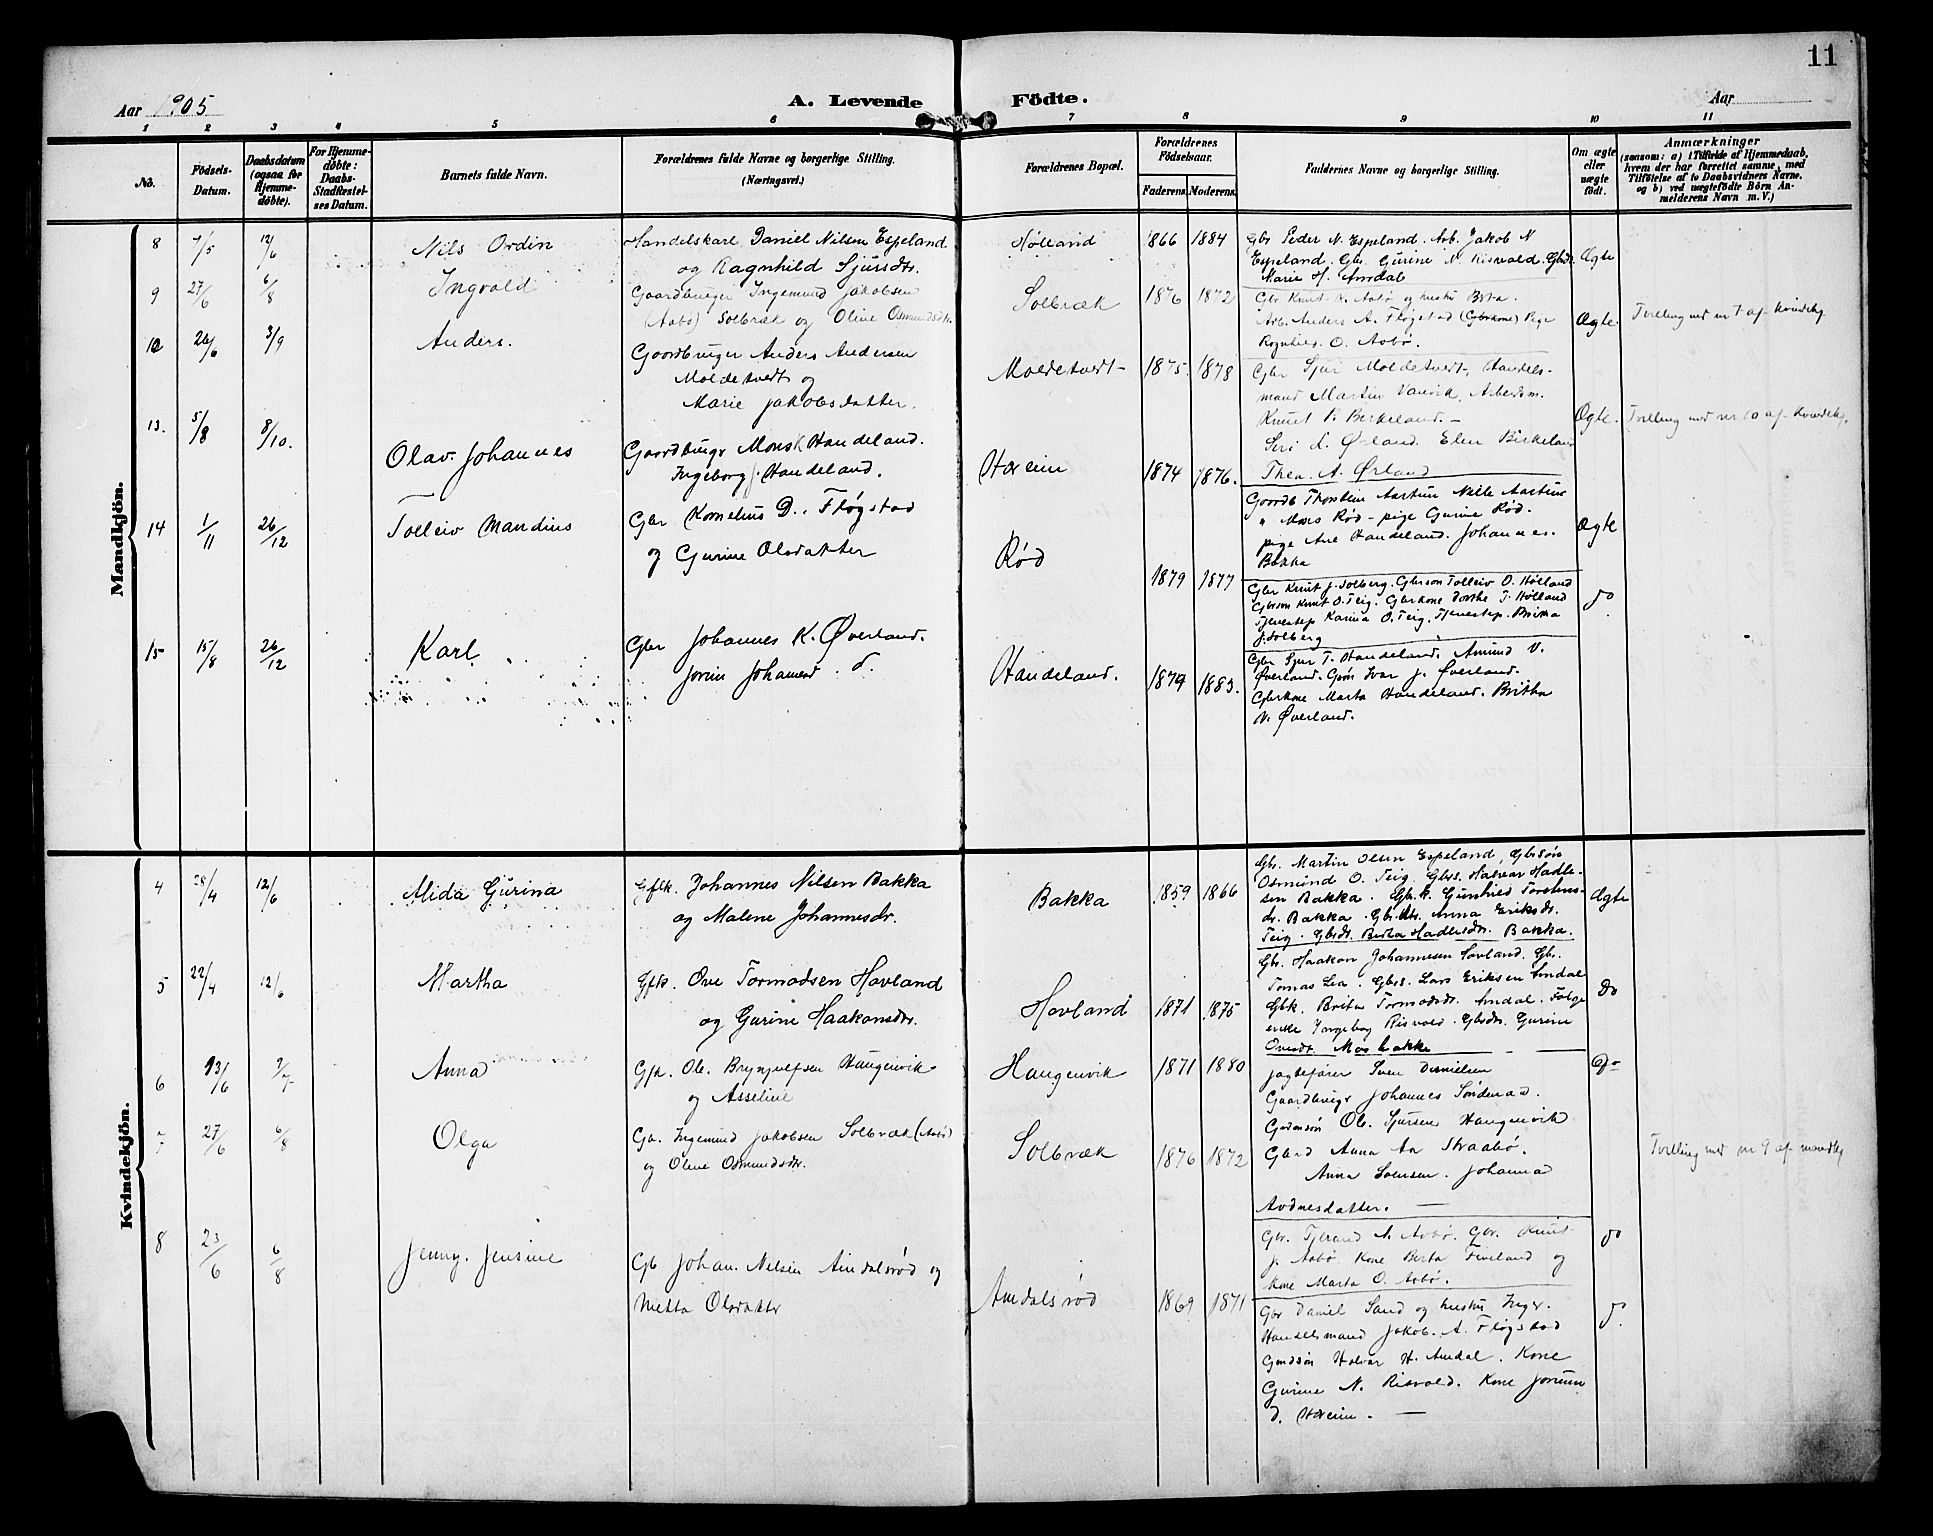 11
Aar 1905
A. Levende Födte.
Aar
1 2 3 4 5 6 7 8 9 10 11
No.
Födsels-
Datum.
Daabsdatum
(ogsaa for
Hjemme-
döbte).
For Hjemme-
döbte:
Daabs-
Stadfæstel-
ses Datum.
Barnets fulde Navn.
Forældrenes fulde Navne og borgerlige Stilling.
(Næringsvei.)
Forældrenes Bopæl.
Forældrenes
Födselsaar.
Faderens. Moderens.
Faddernes Navne og borgerlige Stilling.
Om ægte
eller
uægte
födt.
Anmærkninger
(saasom: a) i Tilfælde af Hjemmedaab,
hvem der har forrettet samme, med
Tilföielse af to Daabsvidners Navne,
og b) ved uægtefödte Börn An-
melderens Navn m. V.)
Mandkjön.
8 7/5 12/6 Nils Ordin
Handelskarl Daniel Nilsen Espeland
og Ragnhild Sjursdtr.
Hølland 1866 1884
Gbr Peder N. Espeland. Arb. Jakob N
Espeland. Gbr. Gurine N Risvold. Gbdr.
Marie H. Amdal
Ægte
9 27/6 6/8 Ingvald
Gaardbruger Ingemund Jakobsen
(Aabø) Solbræk og Oline Osmundsdtr.
Solbræk 1876 1872
Gbr Knut A. Aabø og hustru Berta.
Arb. Anders A. Fløgstad (Gbrkone) Pige
Ragnhild O. Aabø.
Ægte.
Tvilling med nr 7 af kvindekj.
10 26/6 3/9 Anders.
Gaardbruger Anders Andersen
Moldetvedt og
Marie Jakobsdatter.
Moldetvedt 1875. 1878
Gbr Sjur Moldetvedt, Handels-
mand Martin Vanvik, Arbeidsm.
Knut P. Birkeland. –
Siri L. Ørland. Elen Birkeland
Thea A. Ørland
Ægte.
Tvilling med nr 10 af kvindekj.
13. 5/8 8/10. Olav Johannes
Gaardbrugr Mons K Handeland.
Ingeborg J. Handeland.
Hoxeim 1874 1876.
Gaardb Thorstein Aartun Nille Aartun
" Mons Rød – pige Gurine Rød.
pige Ane Handeland. Johannes.
Bakka
Ægte
14 1/11 26/12 Tolleiv Mandius
Gbr Kornelius D. Fløgstad
og Gurine Olsdatter
Rød 1879 1877
Gbr Knut J. Solberg. Gbrson Tolleiv O. Hølland
Gbrson Knut O. Teig. Gbrkone Dorthe T. Hølland
Tjenestep Karina O. Teig. Tjenestep. Britha
J. Solberg
do
15 15/8 26/12 Karl
Gbr Johannes K. Øverland.
Jorine Johannesd.
Handeland. 1879 1883.
Gbr Sjur T. Handeland. Amund V.
Øverland. Ivar J. Øverland.
Gbrkone Marta Handeland. Britha
N. Øverland.
Kvindekjön.
4 28/4 12/6 Alida Gurina
Gflk. Johannes Nilsen Bakka
og Malene Johannesdr.
Bakka 1859 1866
Gbr. Martin Olsen Espeland, Gbrsøn
Osmund O. Teig. Gbrs. Halvar Hadle-
sen Bakka. Gbr.k. Gunhild Torstens-
dr. Bakka. Gbr.dtr. Anna Eriksdr.
Teig. Gbrdr. Berta Hadlesdr. Bakka.
Ægte
5 22/4 12/6 Martha
Gflk. Ove Tormodsen Hovland
og Gurine Haakonsdtr.
Hovland 1871 1875
Gbr. Haakon Johannesen Søvland. Gbr.
Tomas Lea. Gbrs. Lars Eriksen Amdal
Gbk. Brita Tormodsdr. Amdal. Følge
enke Ingeborg Risvold. Gbrdtr. Gurine
Ovesdtr. Mosbakke
Do
6 13/6 2/7 Anna
Gfk. Ole Brynjulfsen Haugenvik
og Asseline
Haugenvik 1871 1880
Jagtefører Sven Danielsen
Gaardbrugr Johannes Søndenaa.
Ole Sjursen Haugenvik
Gbrd Anna Aa Straabø.
Anna Svensen. Johanna
Avdnesdatter.
Do
7 27/6 6/8 Olga
Gb. Ingemund Jakobsen Solbræk (Aabø)
og Oline Osmundsdtr.
Solbræk 1876 1872
Gbr. Tjerand N. Aabø. Gbr. Knut
J. Aabø Kone Berta Fineland og
Kone Marta O. Aabø.
do
Tvilling med nr 9 af mandkj
8 23/6 6/8 Jenny Jensine
Gb Johan Nilsen Amdalsrød og
Metta Olsdatter
Amdalsrød 1869 1871
Gbr Daniel Sand og hustru Inger.
Handelsmand Jakob A. Fløgstad
Halvar H. Amdal. Kone
Gurine N. Risvold. Kone Jorunn
D. Hoxeim.
do